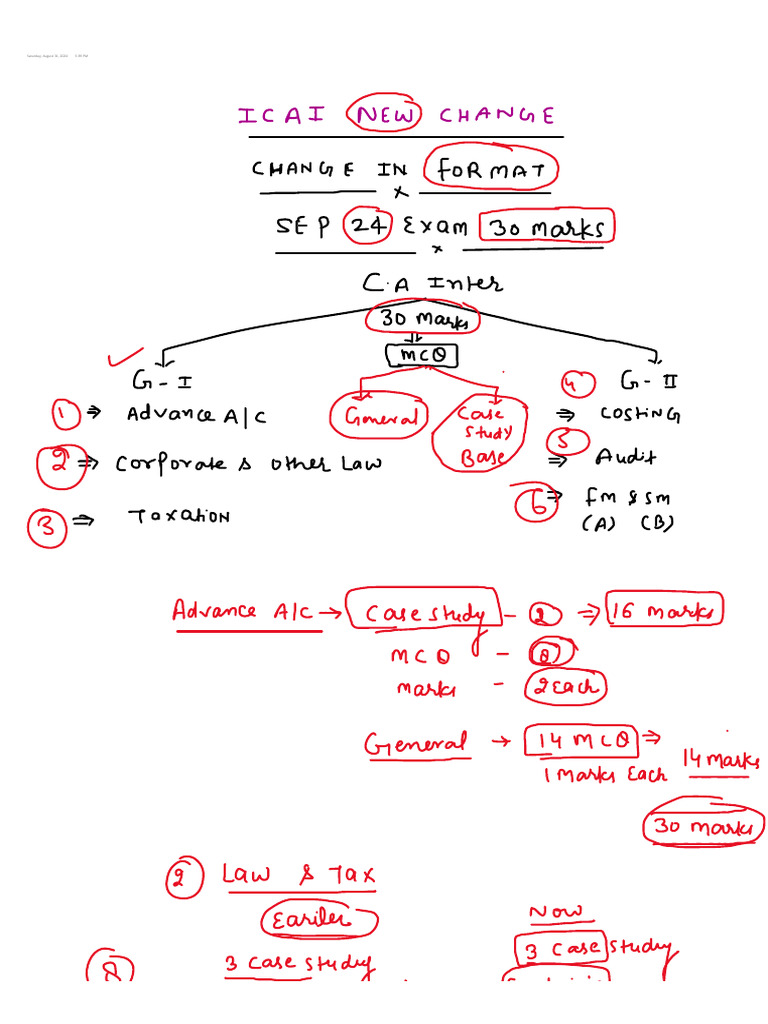 ICAI NEW CHANGE
CHANGE IN FORMAT
x
SEP 24 Exam 30 marks
x
C.A Inter
30 marks
MCQ
G-I
4 G-II
1 ⇒ Advance A/C
General
Case
Study
Base
⇒ Costing
2 ⇒ Corporate & other Law
5 ⇒ Audit
3 ⇒ Taxation
6 ⇒ Fm & sm
(A) (B)
Advance A/C → Case study - 2 ⇒ 16 marks
MCQ - 8
marks - 2 Each
General → 14 MCQ ⇒ 14 marks
1 marks Each
30 marks
2 Law & Tax
Eariler
Now
3 Case study
3 Case study
8